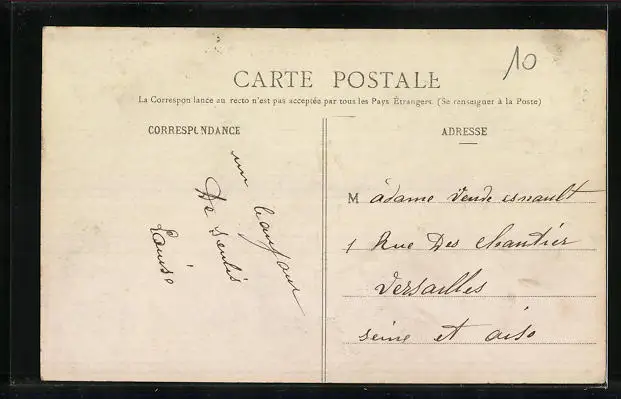 10
CARTE POSTALE
La Correspondance au recto n'est pas acceptée par tous les Pays Étrangers. (Se renseigner à la Poste)
CORRESPONDANCE
un bonjour
De senlis
Louise
ADRESSE
Madame Veuve esnault
1 Rue Des chantier
Versailles
seine et oise